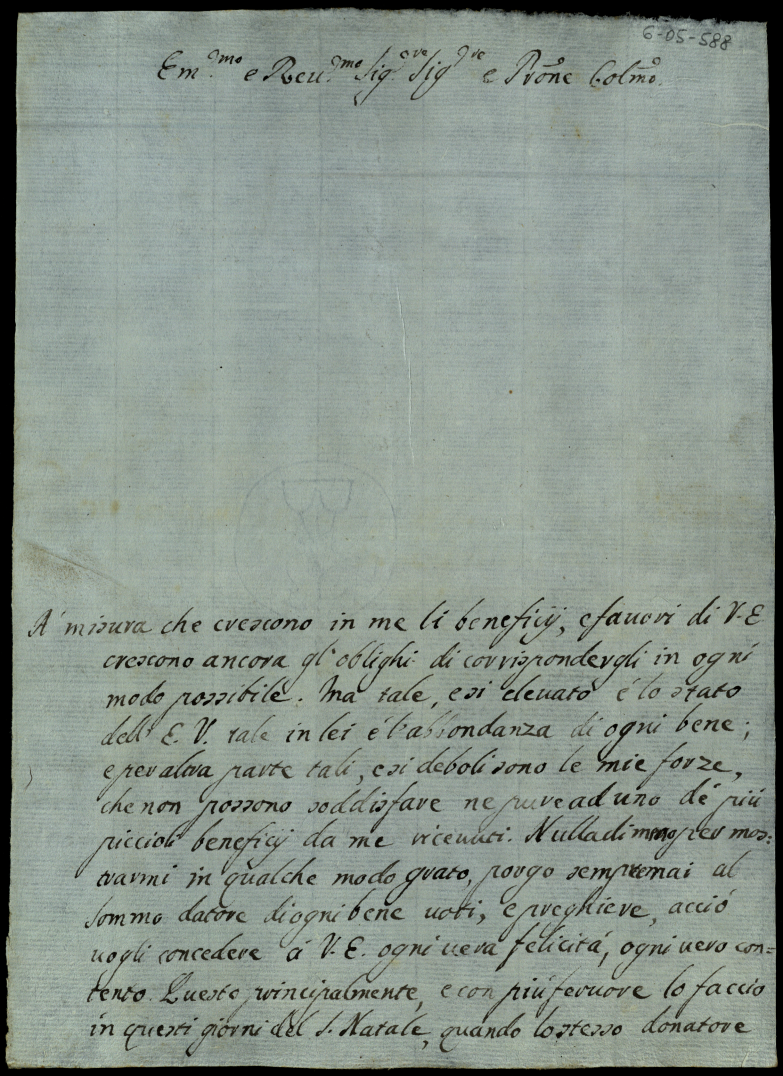 6-05-588
Em.mo e Reu.mo Sig.re Sig.re e Prõne Colmõ.
A' misura che crescono in me li beneficij, e fauori di V. E
crescono ancora gl' oblighi di corrispondergli in ogni
modo possibile. Ma tale, e si eleuato é lo stato
dell' E. V. tale in lei é l'abbondanza di ogni bene;
e per altra parte tali, e si deboli sono le mie forze,
che non possono soddisfare ne pure ad uno dé più
piccioli beneficij da me riceuuti. Nulladimeno per mos=
trarmi in qualche modo grato, porgo sempremai al
sommo datore di ogni bene uoti, e preghiere, acció
uogli concedere á V. E. ogni uera felicitá, ogni uero con=
tento. Questo principalmente, e con piú feruore lo faccio
in questi giorni del S. Natale, quando lo stesso donatore